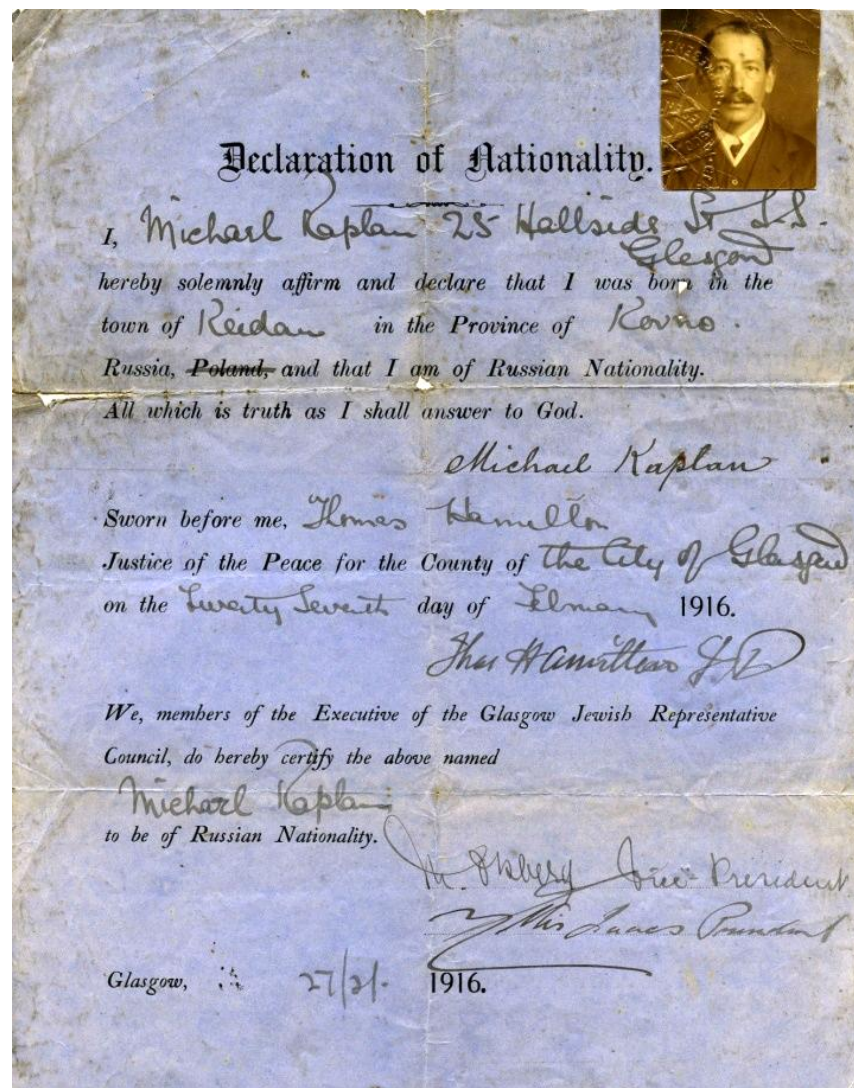 Declaration of Nationality.
I, Michael Kaplan 25 Hallside St S.S.
Glasgow
hereby solemnly affirm and declare that I was born in the
town of Keidan in the Province of Kovno.
Russia, Poland, and that I am of Russian Nationality.
All which is truth as I shall answer to God.
Michael Kaplan
Sworn before me, Thomas Hamilton
Justice of the Peace for the County of the City of Glasgow
on the Twenty Seventh day of February 1916.
Thos Hamilton J.P.
We, members of the Executive of the Glasgow Jewish Representative
Council, do hereby certify the above named
Michael Kaplan
to be of Russian Nationality.
Vice-President
Isaacs President
Glasgow, 27/2/. 1916.